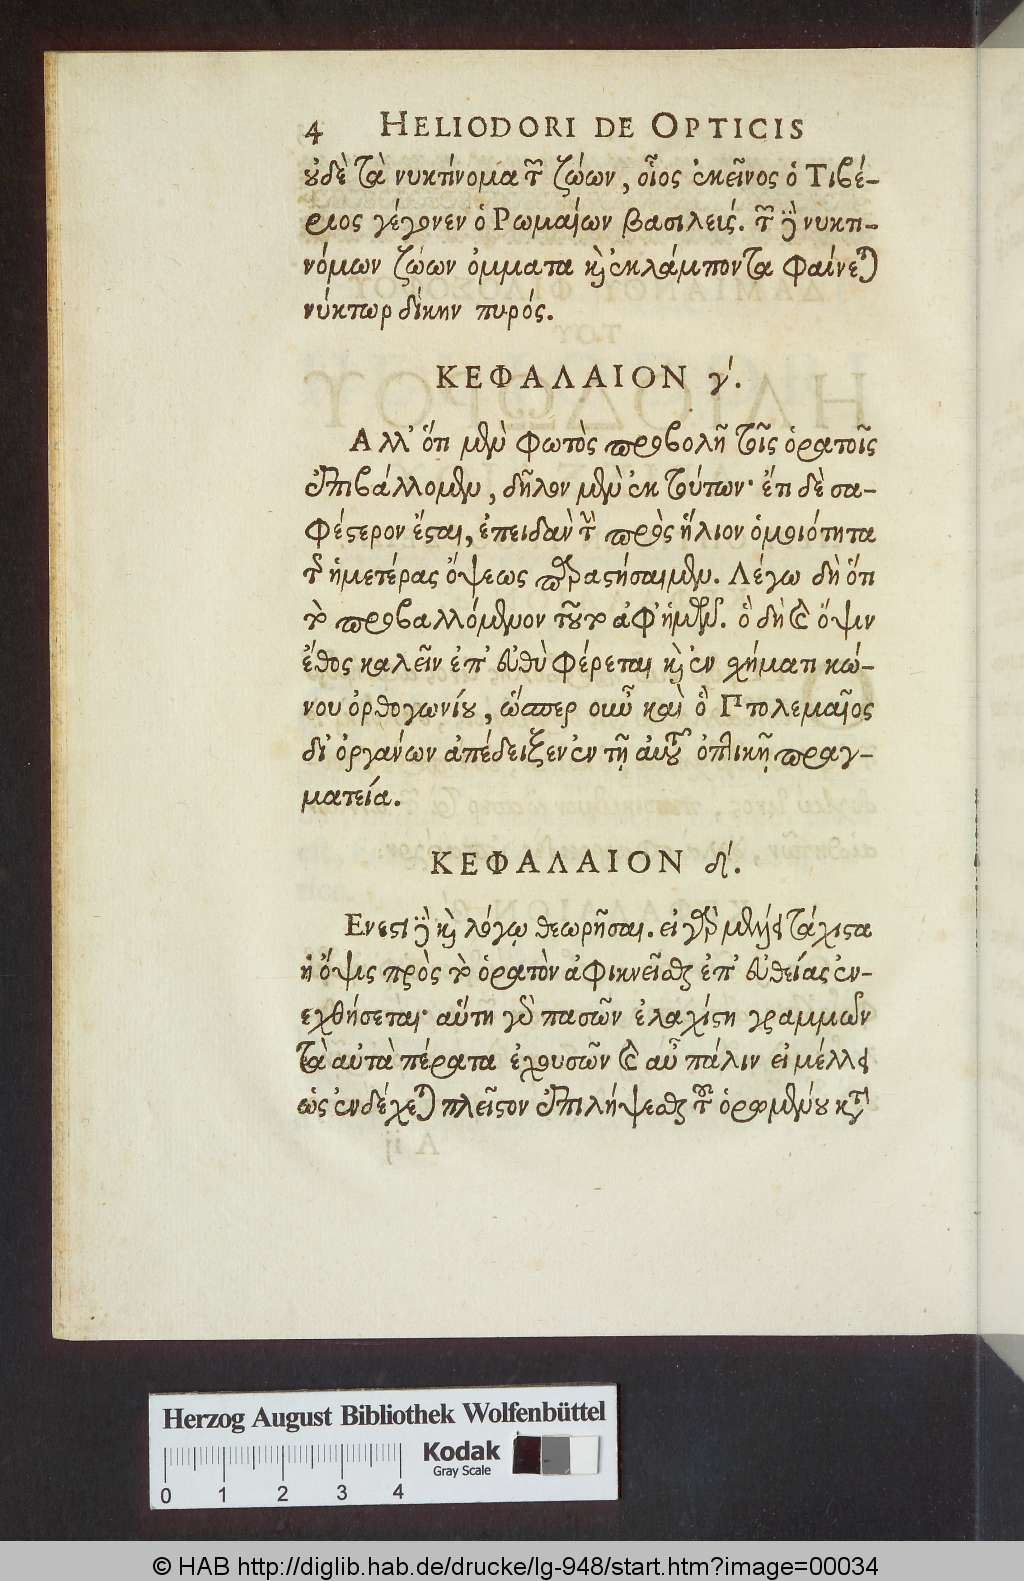 4 HELIODORI DE OPTICIS
οὐδὲ τὰ νυκτίνομα τῶν ζώων, οἷος ἐκεῖνος ὁ Τιβέ-
ριος γέγονεν ὁ Ῥωμαίων βασιλεύς. τῶν γοῦν νυκτι-
νόμων ζώων ὄμματα καὶ ἐκλάμποντα φαίνεται
νύκτωρ δίκην πυρός.
ΚΕΦΑΛΑΙΟΝ γ΄.
Αλλ' ὅτι μὲν φωτὸς προβολῇ τοῖς ὁρατοῖς
ἐπιβάλλομεν, δῆλον μὲν ἐκ τούτων· ἔτι δὲ σα-
φέστερον ἔσται, ἐπειδὰν τὴν πρὸς ἥλιον ὁμοιότητα
τῆς ἡμετέρας ὄψεως παραστήσαιμεν. Λέγω δὴ ὅτι
τὸ προβαλλόμενον τοῦτο ἀφ' ἡμῶν. ὃ δὴ καὶ ὄψιν
ἔθος καλεῖν ἐπ' εὐθὺ φέρεται καὶ ἐν σχήματι κώ-
νου ὀρθογωνίου, ὥσπερ οὖν καὶ ὁ Πτολεμαῖος
δι' ὀργάνων ἀπέδειξεν ἐν τῇ αὐτοῦ ὀπτικῇ πραγ-
ματείᾳ.
ΚΕΦΑΛΑΙΟΝ δ΄.
Ενεστι γοῦν καὶ λόγῳ θεωρῆσαι. εἰ γὰρ μέλλει τάχιστα
ἡ ὄψις πρὸς τὸ ὁρατὸν ἀφικνεῖσθαι ἐπ' εὐθείας ἐν-
εχθήσεται· αὕτη γὰρ πασῶν ἐλαχίστη γραμμῶν
τὰ αὐτὰ πέρατα ἐχουσῶν καὶ αὖ πάλιν εἰ μέλλει
ὡς ἐνδέχεται πλεῖστον ἐπιλήψεσθαι τοῦ ὁρωμένου κατὰ
Herzog August Bibliothek Wolfenbüttel
Kodak
Gray Scale
0 1 2 3 4
© HAB http://diglib.hab.de/drucke/lg-948/start.htm?image=00034